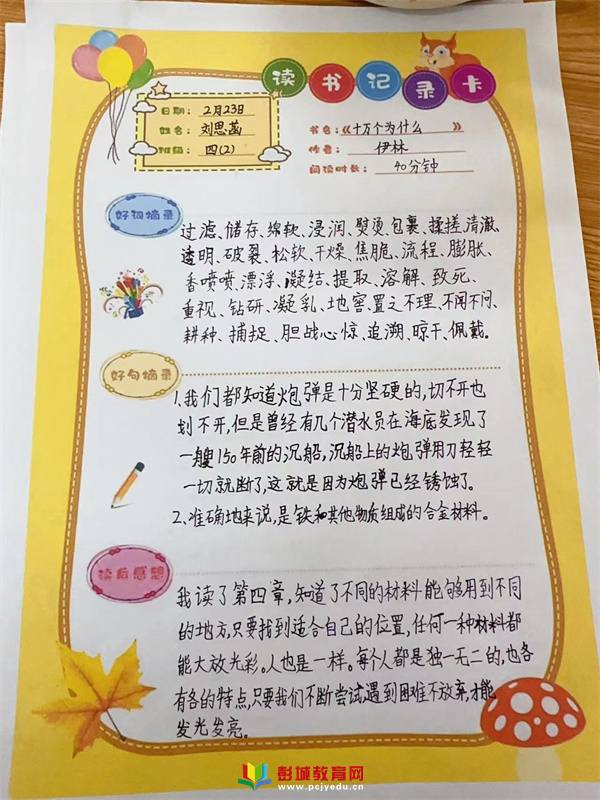 读书记录卡
日期：2月23日
姓名：刘思菡
班级：四(2)
书名：《十万个为什么》
作者：伊林
阅读时长：40分钟
好词摘录
过滤、储存、绵软、浸润、熨烫、包裹、揉搓、清澈、
透明、破裂、松软、干燥、焦脆、流程、膨胀、
香喷喷、漂浮、凝结、提取、溶解、致死、
重视、钻研、凝乳、地窖、置之不理、不闻不问、
耕种、捕捉、胆战心惊、追溯、晾干、佩戴。
好句摘录
1、我们都知道炮弹是十分坚硬的，切不开也
划不开，但是曾经有几个潜水员在海底发现了
一艘150年前的沉船，沉船上的炮弹用刀轻轻
一切就断了，这就是因为炮弹已经锈蚀了。
2、准确地来说，是铁和其他物质组成的合金材料。
读后感想
我读了第四章，知道了不同的材料能够用到不同
的地方，只要找到适合自己的位置，任何一种材料都
能大放光彩。人也是一样。每个人都是独一无二的，也各
有各的特点，只要我们不断尝试，遇到困难不放弃，才能
发光发亮。
彭城教育网
www.pcjyedu.cn